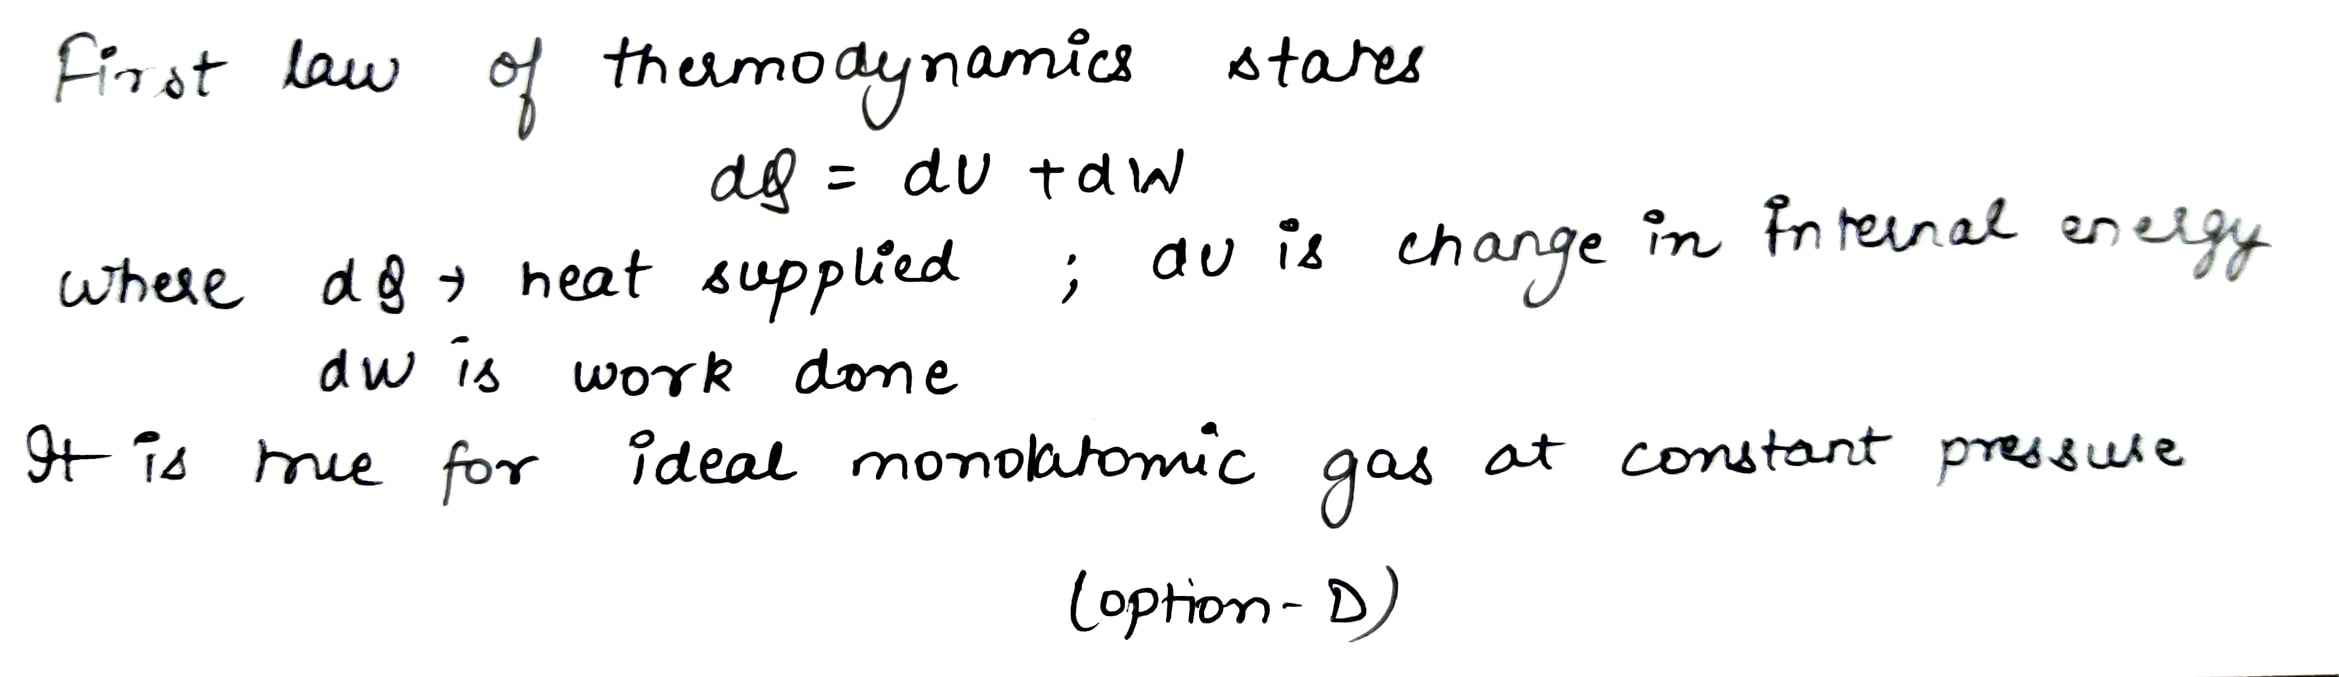 First law of thermodynamics states
dQ = dU + dW
where dQ → heat supplied ; dU is change in internal energy
dw is work done
It is true for ideal monoatomic gas at constant pressure
(option - D)